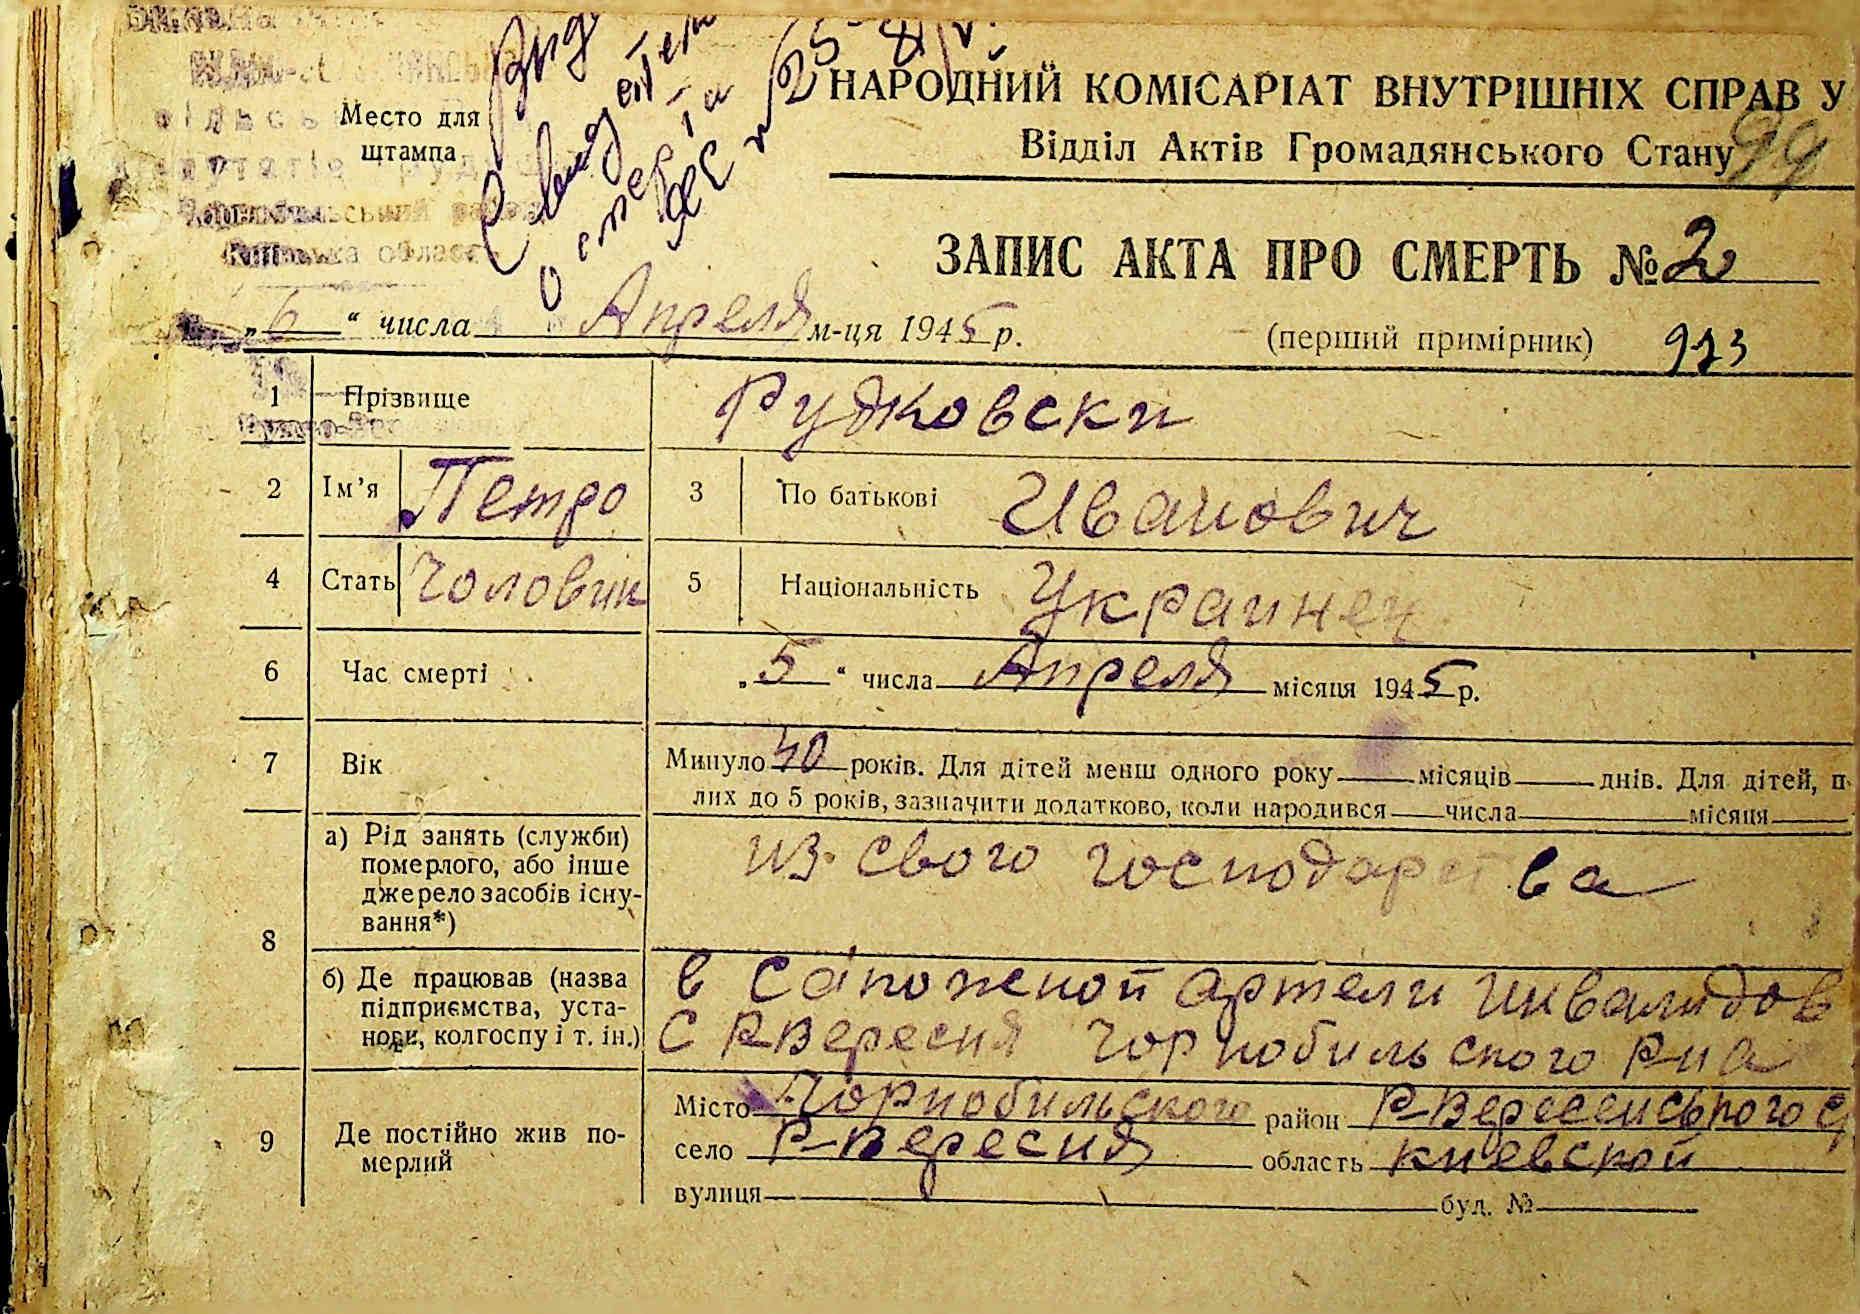 Место для
штампа
Свидетел
о смерти
НАРОДНИЙ КОМІСАРІАТ ВНУТРІШНІХ СПРАВ У
Відділ Актів Громадянського Стану
99
ЗАПИС АКТА ПРО СМЕРТЬ № 2
„6“ числа Апреля м-ця 1945 р.
(перший примірник) 973
1 Прізвище Рудковски
2 Ім’я Петро 3 По батькові Иванович
4 Стать Чоловик 5 Національність Украинец
6 Час смерті „5“ числа Апреля місяця 1945 р.
7 Вік Минуло 40 років. Для дітей менш одного року місяців днів. Для дітей, п
лих до 5 років, зазначити додатково, коли народився числа місяця
8 а) Рід занять (служби)
померлого, або інше
джерело засобів існу-
вання*)
из свого господарства
б) Де працював (назва
підприємства, уста-
нови, колгоспу і т. ін.)
в сапожной артели инвалидов
С Р-Вересня Чорнобильского р-на
9 Де постійно жив по-
мерлий
Місто Чорнобильского район Р-Вересенського с
село Р-Вересня область киевской
вулиця буд. №